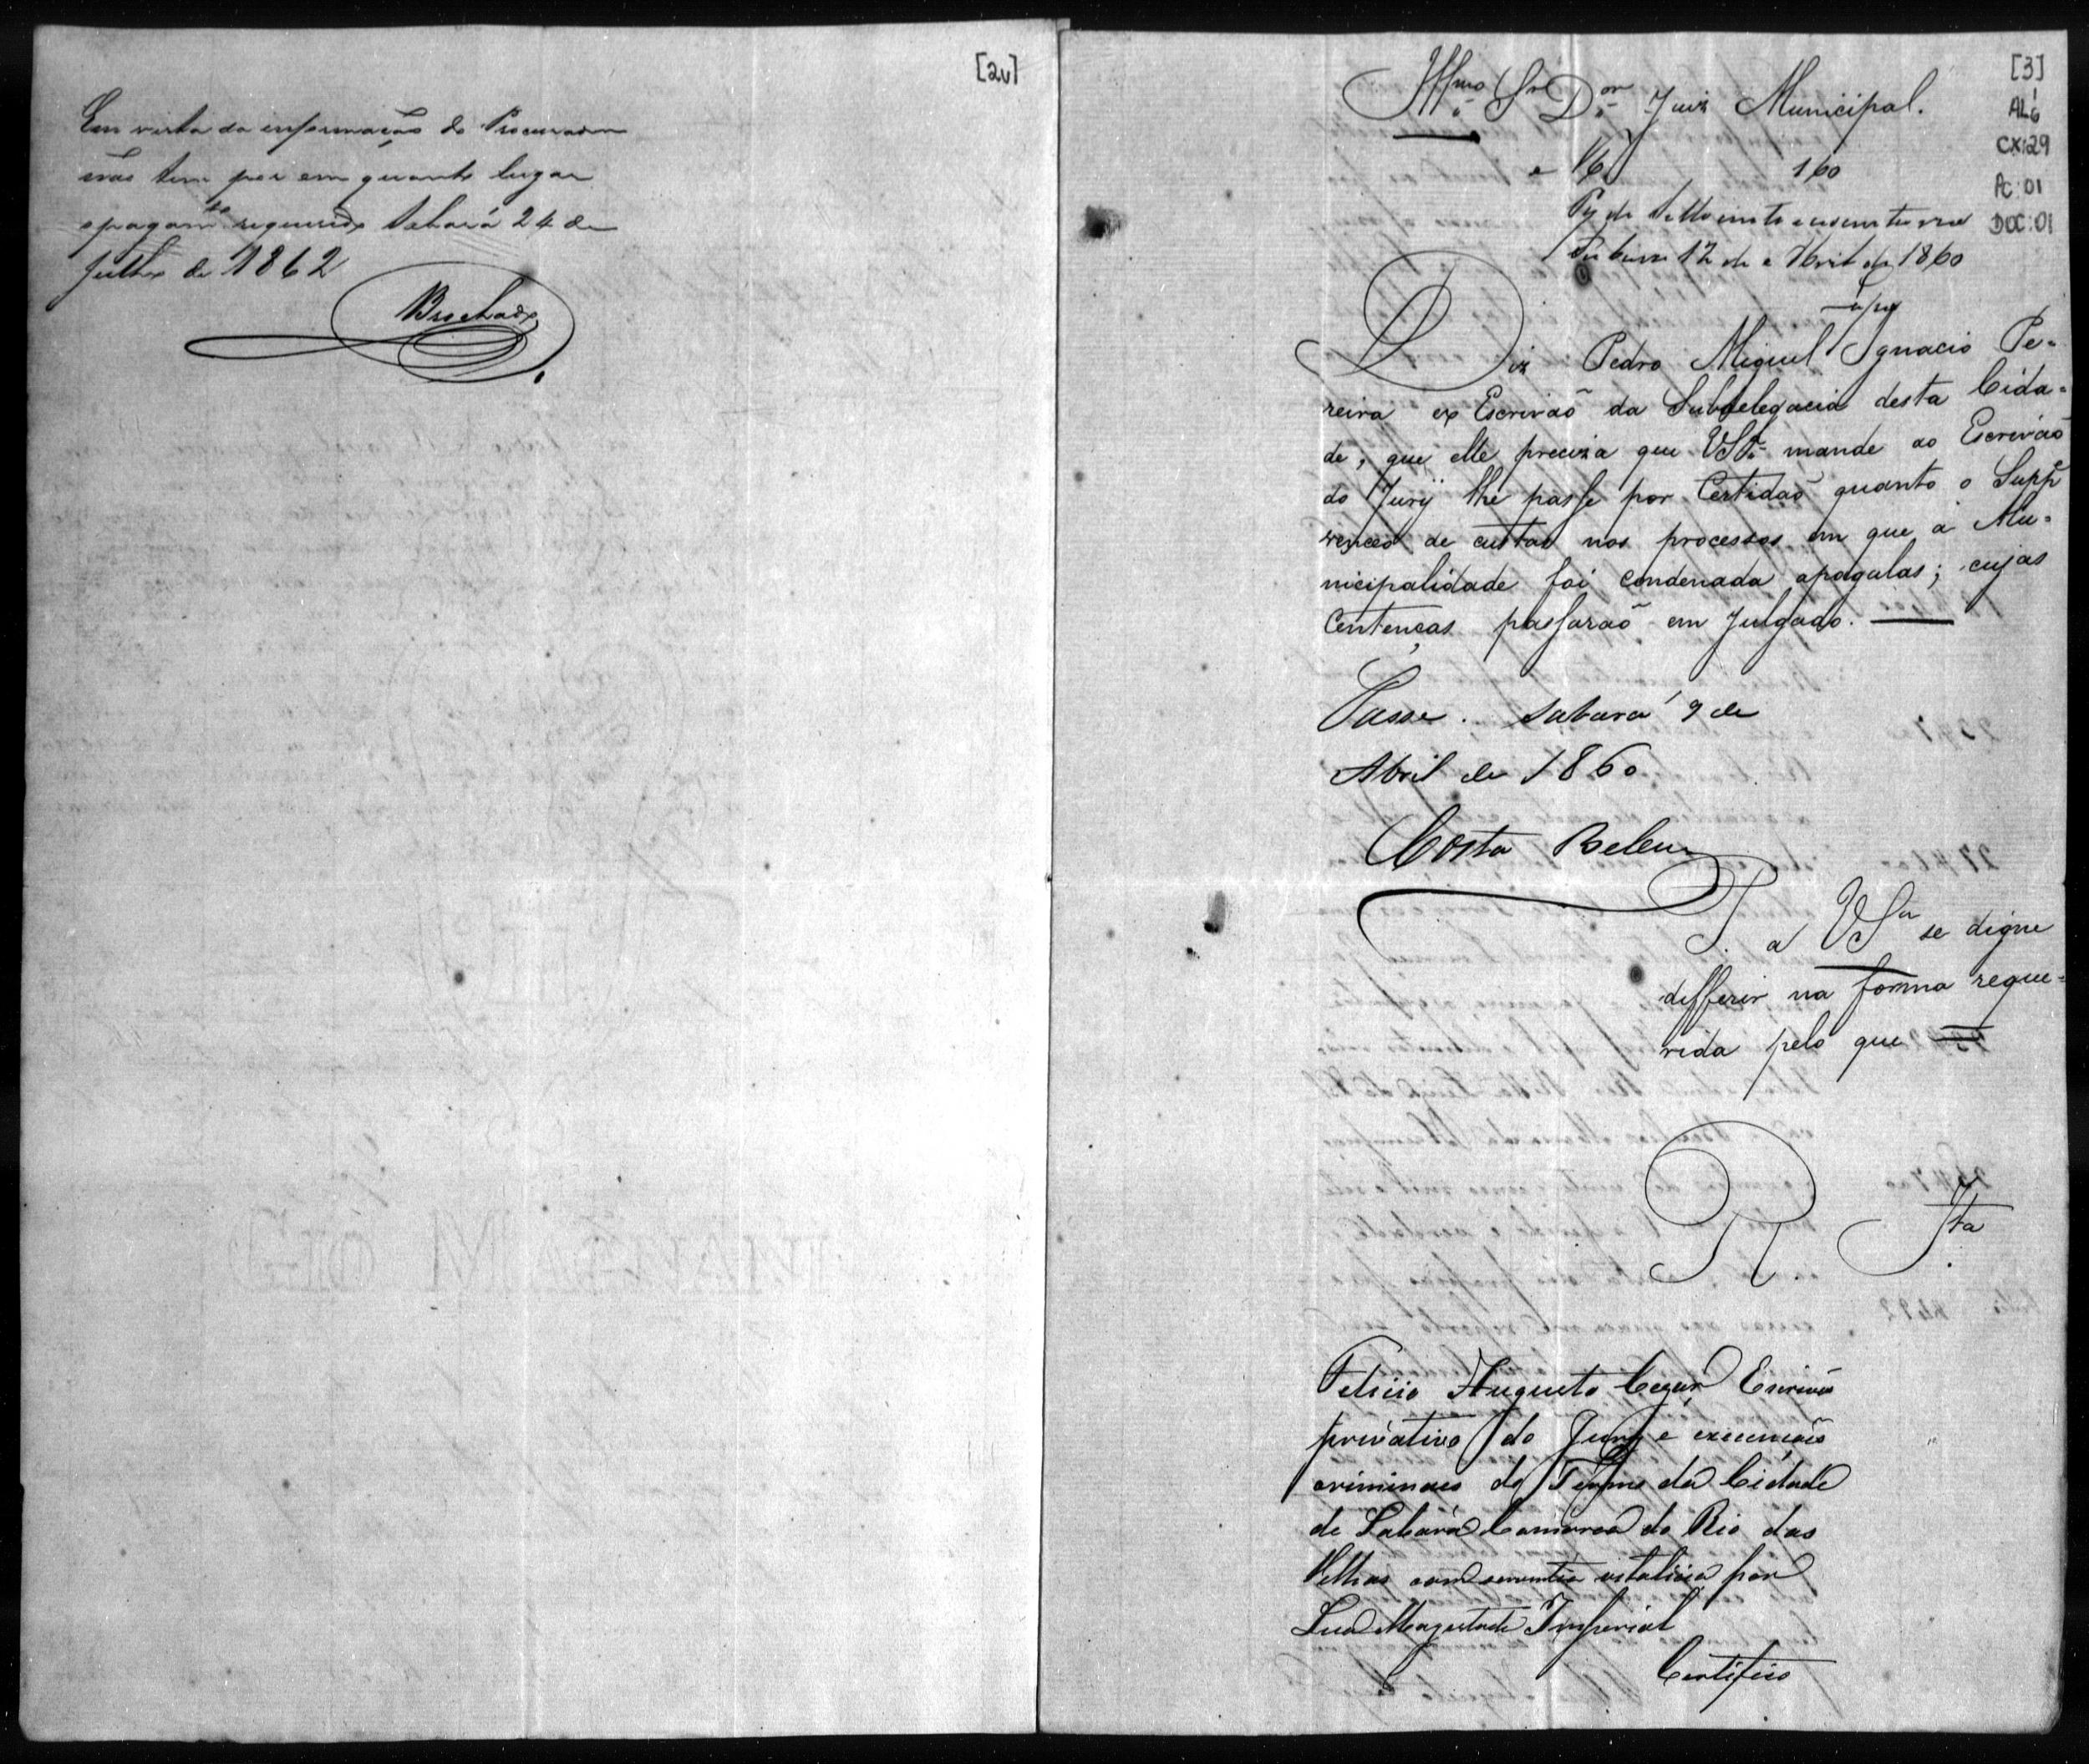 [2v]
Em vista da informação do Procurador
não tem por em quanto lugar
opagamto requerido Sabará 24 de
Julho de 1862
Brochado
[3]
AL:6
CX:29
PC:01
DOC:01
Illmo Snr Dor Juiz Municipal.
160
Pg de Sello cento e secenta reis
12 de Abril de 1860
Diz Pedro Miguel Ignacio Pe=
reira ex Escrivaõ da Subdelegacia desta Cida=
de, que elle preciza que VSa mande ao Escrivaõ
do Jury lhe passe por Certidaõ quanto o Suppe
venceo de custas nos processos em que a Mu=
nicipalidade foi condenada apagalas; cujas
Centenças passaraõ em Julgado.
Passe. Sabará 9 de
Abril de 1860
Costa Belem
P. a VSa se digne
differir na forma reque=
rida pelo que
R. Jta
Felicio Augusto Cezar Escrivão
privativo do Jury e execuções
criminaes do Termo da Cidade
de Sabará Comarca do Rio das
Velhas com serventia vitalicia por
Sua Magestade Imperial
Certifico